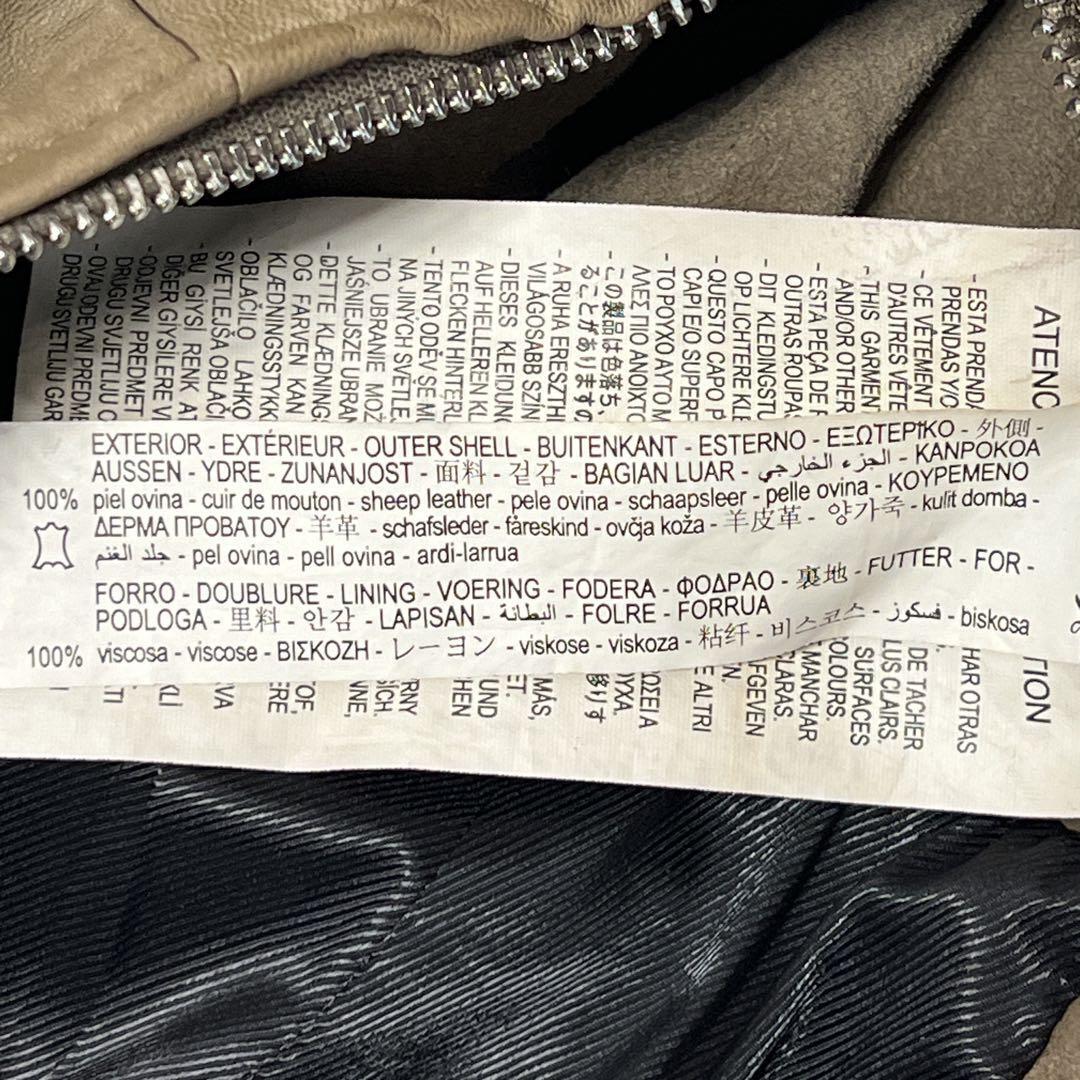 EXTERIOR - EXTÉRIEUR - OUTER SHELL - BUITENKANT - ESTERNO - ΕΞΩΤΕΡΙΚΟ - 外側 -
AUSSEN - YDRE - ZUNANJOST - 面料 - 겉감 - BAGIAN LUAR - الجزء الخارجي - KANPOKOA
100% piel ovina - cuir de mouton - sheep leather - pele ovina - schaapsleer - pelle ovina - ΚΟΥΡΕΜΕΝΟ
ΔΕΡΜΑ ΠΡΟΒΑΤΟΥ - 羊革 - schafsleder - fåreskind - ovčja koža - 羊皮革 - 양가죽 - kulit domba -
جلد الغنم - pel ovina - pell ovina - ardi-larrua
FORRO - DOUBLURE - LINING - VOERING - FODERA - ΦΟΔΡΑΟ - 裏地 - FUTTER - FOR -
PODLOGA - 里料 - 안감 - LAPISAN - البطانة - FOLRE - FORRUA
100% viscosa - viscose - ΒΙΣΚΟΖΗ - レーヨン - viskose - viskoza - 粘纤 - 비스코스 - فسكوز - biskosa
ATENC
TION
- ESTA PRENDA
HAR OTRAS
PRENDAS YO
- CE VÊTEMENT
DE TACHER
D'AUTRES VÊTE
LUS CLAIRS.
- THIS GARMEN
SURFACES
AND/OR OTHER
OLOURS.
- ESTA PEÇA DE
MANCHAR
OUTRAS ROUPA
CLARAS.
- DIT KLEDINGSTU
AFGEVEN
OP LICHTERE KLE
- QUESTO CAPO P
E ALTRI
CAPI E/O SUPERF
- ΤΟ ΡΟΥΧΟ ΑΥΤΟ Μ
ΩΣΕΙ Α
ΛΛΕΣ ΠΙΟ ΑΝΟΙΧΤΟ
ΟΥΧΑ.
- この製品は色落ち、
移りす
ることがありますの
- A RUHA ERESZTHI
MÁS,
VILÁGOSABB SZÍN
ET.
- DIESES KLEIDUN
UND
AUF HELLEREN KL
FLECKEN HINTERL
CHEN
- TENTO ODĚV SE MŮ
RNY
NA JINÝCH SVĚTLE
ŠÍCH.
- TO UBRANIE MOŻ
JAŚNIEJSZE UBRAN
NNE,
- DETTE KLÆDNING
TOF,
OG FARVEN KAN
KLÆDNINGSSTYKK
ERE
- OBLAČILO LAHKO
SVETLEJŠA OBLAČI
AVA
- BU GİYSİ RENK AT
DİĞER GİYSİLERE VE
KLİ
- ODJEVNI PREDMET
DRUGU SVJETLIJU O
ITI
- OVAJ ODEVNI PREDME
DRUGU SVETLIJU GAR